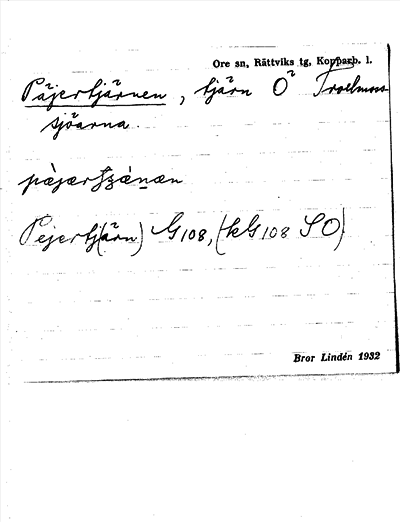 Ore sn, Rättviks tg, Kopparb. l.
Päjertjärnen, tjärn O Troelmus-
sjöarna.
Pejertj(ärn) G108, (kG108 SO)
Bror Lindén 1932